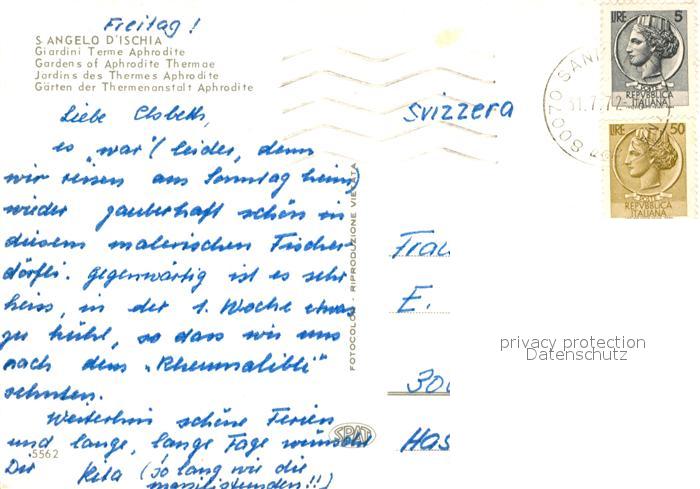 Freitag!
S. ANGELO D'ISCHIA
Giardini Terme Aphrodite
Gardens of Aphrodite Thermae
Jardins des Thermes Aphrodite
Gärten der Thermenanstalt Aphrodite
Liebe Elsbeth,
es "war" (leider, denn
wir reisen am Sonntag heim)
wieder zauberhaft schön in
diesem malerischen Fischer
dörfli. gegenwärtig ist es sehr
heiss, in der 1. Woche etwas
zu kühl, so dass wir uns
nach dem "Rheumalibli"
sehnten.
Weiterhin schöne Ferien
und lange, lange Tage wünscht
Dir Rita (so lang wie die
!!)
5562
FOTOCOLOR - RIPRODUZIONE VIETATA
SPAT
Svizzera
Frau
E.
300
Has
LIRE 5
POSTE
REPVBBLICA
ITALIANA
LIRE 50
POSTE
REPVBBLICA
ITALIANA
80070 SAN
31.7.72
privacy protection
Datenschutz